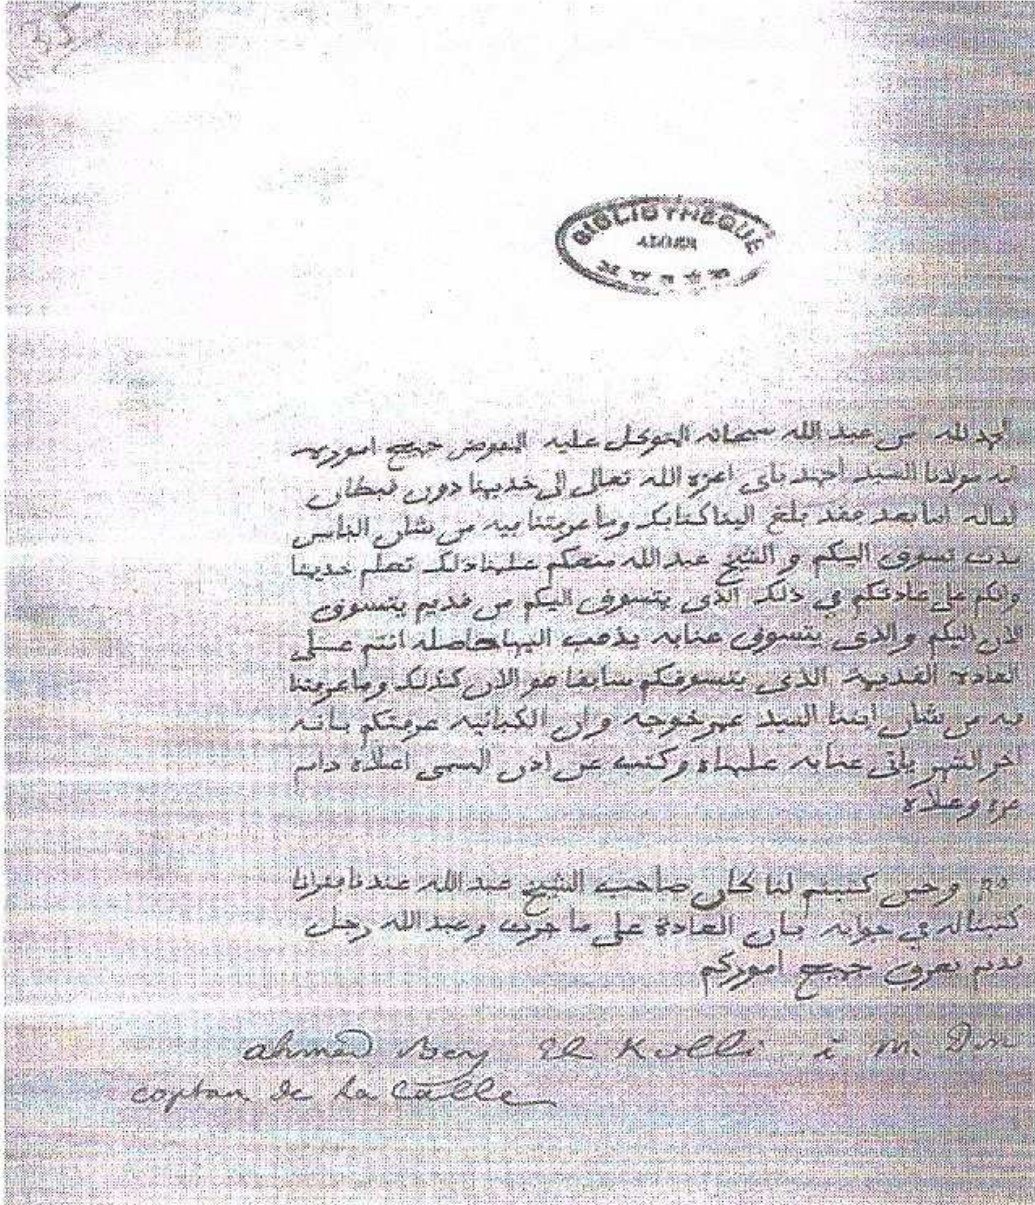 35
BIBLIOTHEQUE
ALGER
MUSÉE
الحمد لله من عبد الله سبحانه المتوكل عليه المفوض جميع اموره
له مولانا السيد احمد باي اعزه الله تعالى الى خديمنا دون قبطان
لقاله اما بعد فقد بلغ الينا كتابك وما عرفتنا فيه من شان الناس
تسوق اليكم و الشيخ عبد الله منعكم علمنا ذلك تعلم خديمنا
وانكم على عادتكم في ذلك الذي يتسوق اليكم من قديم يتسوق
الان اليكم والذي يتسوق عنابه يذهب اليها حاصله انتم على
العادة القديمة الذي يتسوقكم سابقا هو الان كذلك وما عرفتنا
به من شان ابننا السيد عمر خوجه وان الكبانيه عرفتكم بانه
اخر الشهر ياتي عنابه علمناه وكتب عن اذن المسمى اعلاه دام
عزه وعلاه
وحين كتبتم لنا كان صاحب الشيخ عبد الله عندنا
كتبناله في جوابه بان العادة على ما جرت وعبد الله رجل
قديم يعرف جميع اموركم
ahmed Bey El Kolli à M. Don
coptan de La Calle